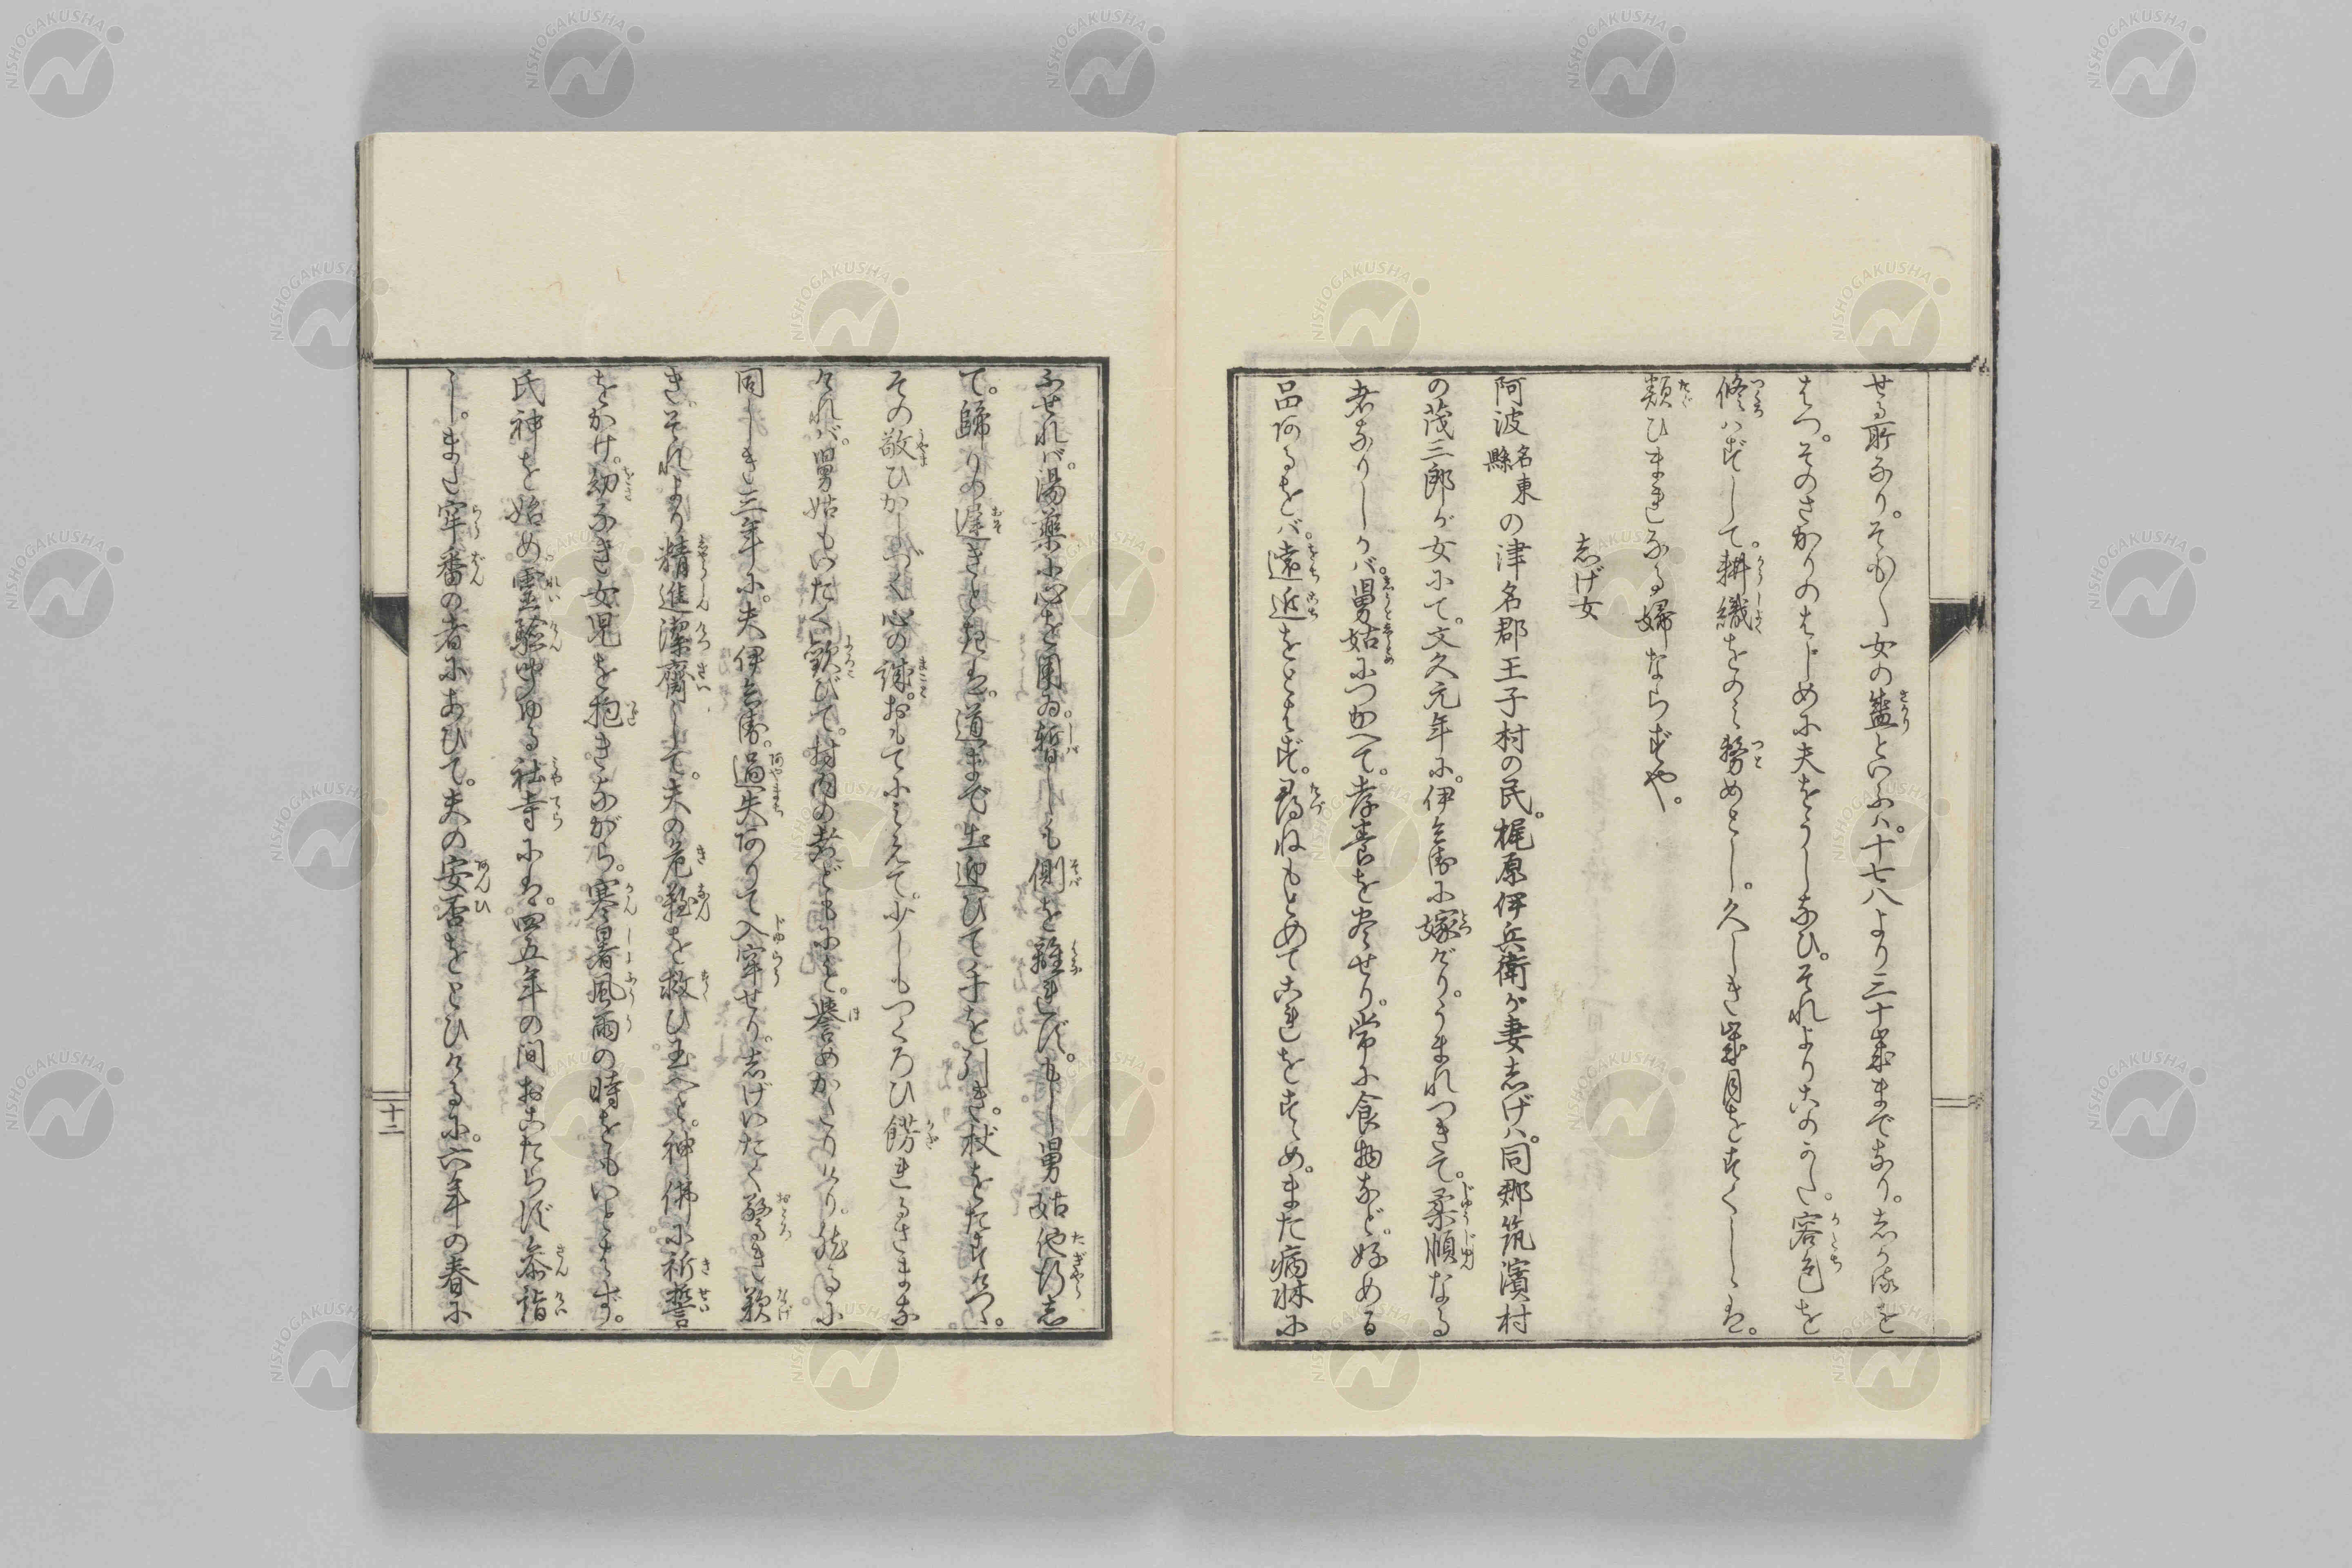 せる所なり。そも〳〵女の盛といふハ。十七八より三十歳までなり。志かるを
はつ。そのさかりのはじめに夫をうしなひ。それよりこのかた。容色を
修ハずして。耕織をのみ務めとし。久しき歳月をすぐしゝは。
類ひまれなる婦ならずや。
志げ女
阿波名東縣の津名郡王子村の民。梶原伊兵衛が妻志げハ。同郡筑濱村
の茂三郎が女にて。文久元年に。伊兵衛に嫁げり。うまれつきて。柔順なる
者なりしかバ。舅姑につかへて。孝養を盡せり。常に食物など。好める
品あるをバ。遠近をとはず。尋ねもとめてこれをすゝめ。また病牀に
ふせれバ。湯藥に心を用ゐ。暫しも側を離れず。もし舅姑他行し
て。歸りの遅きときは。道まで出迎ひて手を引き。杖をたすけつゝ。
その敬ひかしづく心の誠。おもてにみえて。少しもつくろひ餝れるさまな
けれバ。舅姑もいたく歓びて。村内の者どもにも。誉めかたりけり。然るに
同じき三年に。夫伊兵衛。過失ありて入牢せり。志げいたく驚き歎
き。それより精進潔齋して。夫の危難を救ひ玉へと。神佛に祈誓
をかけ。幼なき女児を抱きながら。寒暑風雨の時をもいとはず。
氏神を始め霊驗聞ゆる社寺には。四五年の間おこたらず参詣
し。また牢番の者にあひて。夫の安否をとひけるに。六年の春に
十二